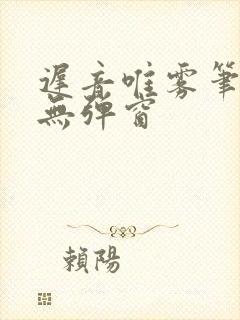 遲音唯雾筆
無弹窗
賴陽